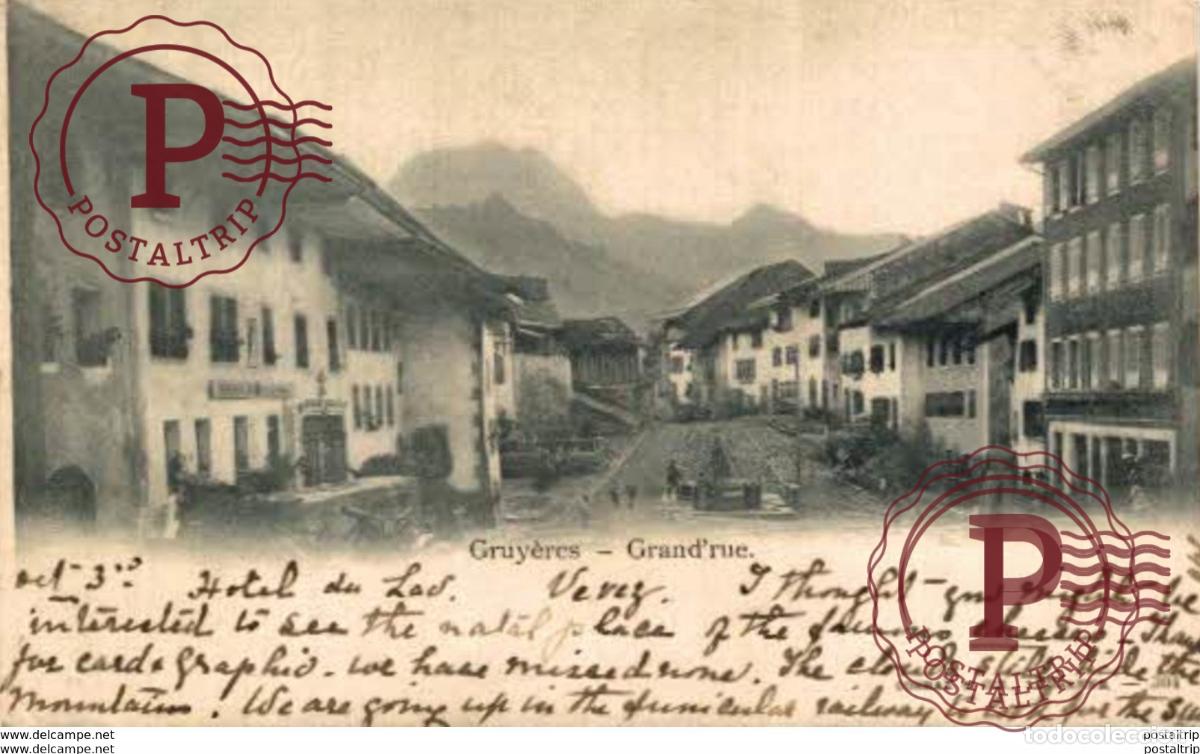 P
POSTALTRIP
Gruyères – Grand'rue.
oct 3rd Hotel du Lac. Vevey. I thought you might be
interested to see the natal place of the famous cheese. Thanks
for card & Graphic. we have missed none. The clouds still hide the
Mountains. We are going up in the funicular railway to the
P
POSTALTRIP
POSTALTRIP
todocoleccion
www.delcampe.net
postaltrip
www.delcampe.net
postaltrip